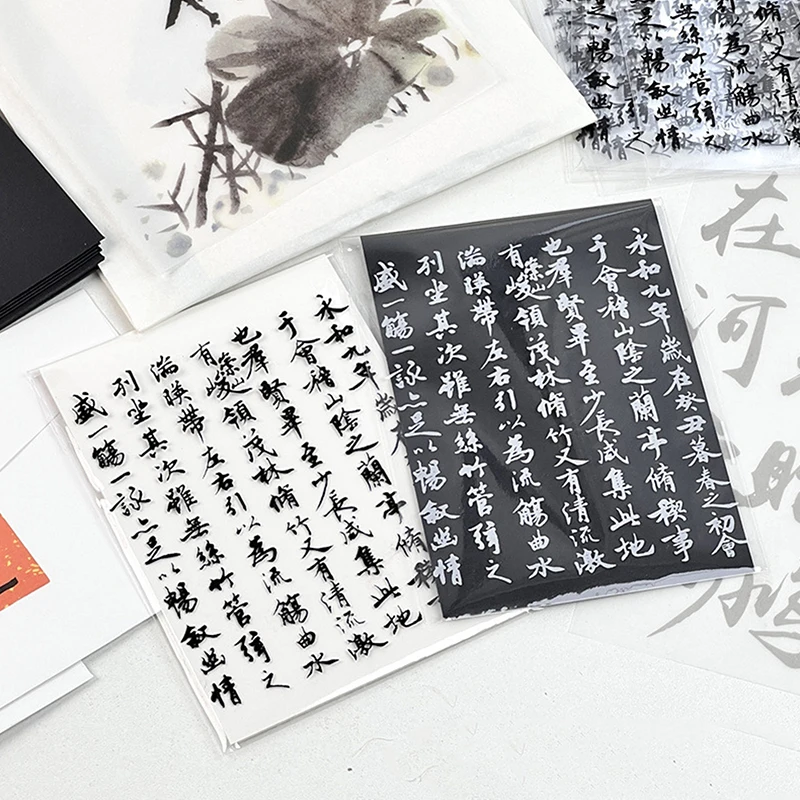 永和九年歲在癸丑暮春之初會
于會稽山陰之蘭亭脩稧事
也羣賢畢至少長咸集此地
有崇山峻領茂林脩竹又有清流激
湍暎帶左右引以為流觴曲水
列坐其次雖無絲竹管弦之
盛一觴一詠亦足以暢敘幽情
永和九年
于會稽山陰之蘭亭脩稧
也羣賢畢至少長咸集此地
有崇山峻領茂林脩竹又有清流激
湍暎帶左右引以為流觴曲水
列坐其次雖無絲竹管弦之
盛一觴一詠亦足以暢敘幽情
脩竹又有清流
為流觴曲水
無絲竹管弦之
以暢敘幽情
在河